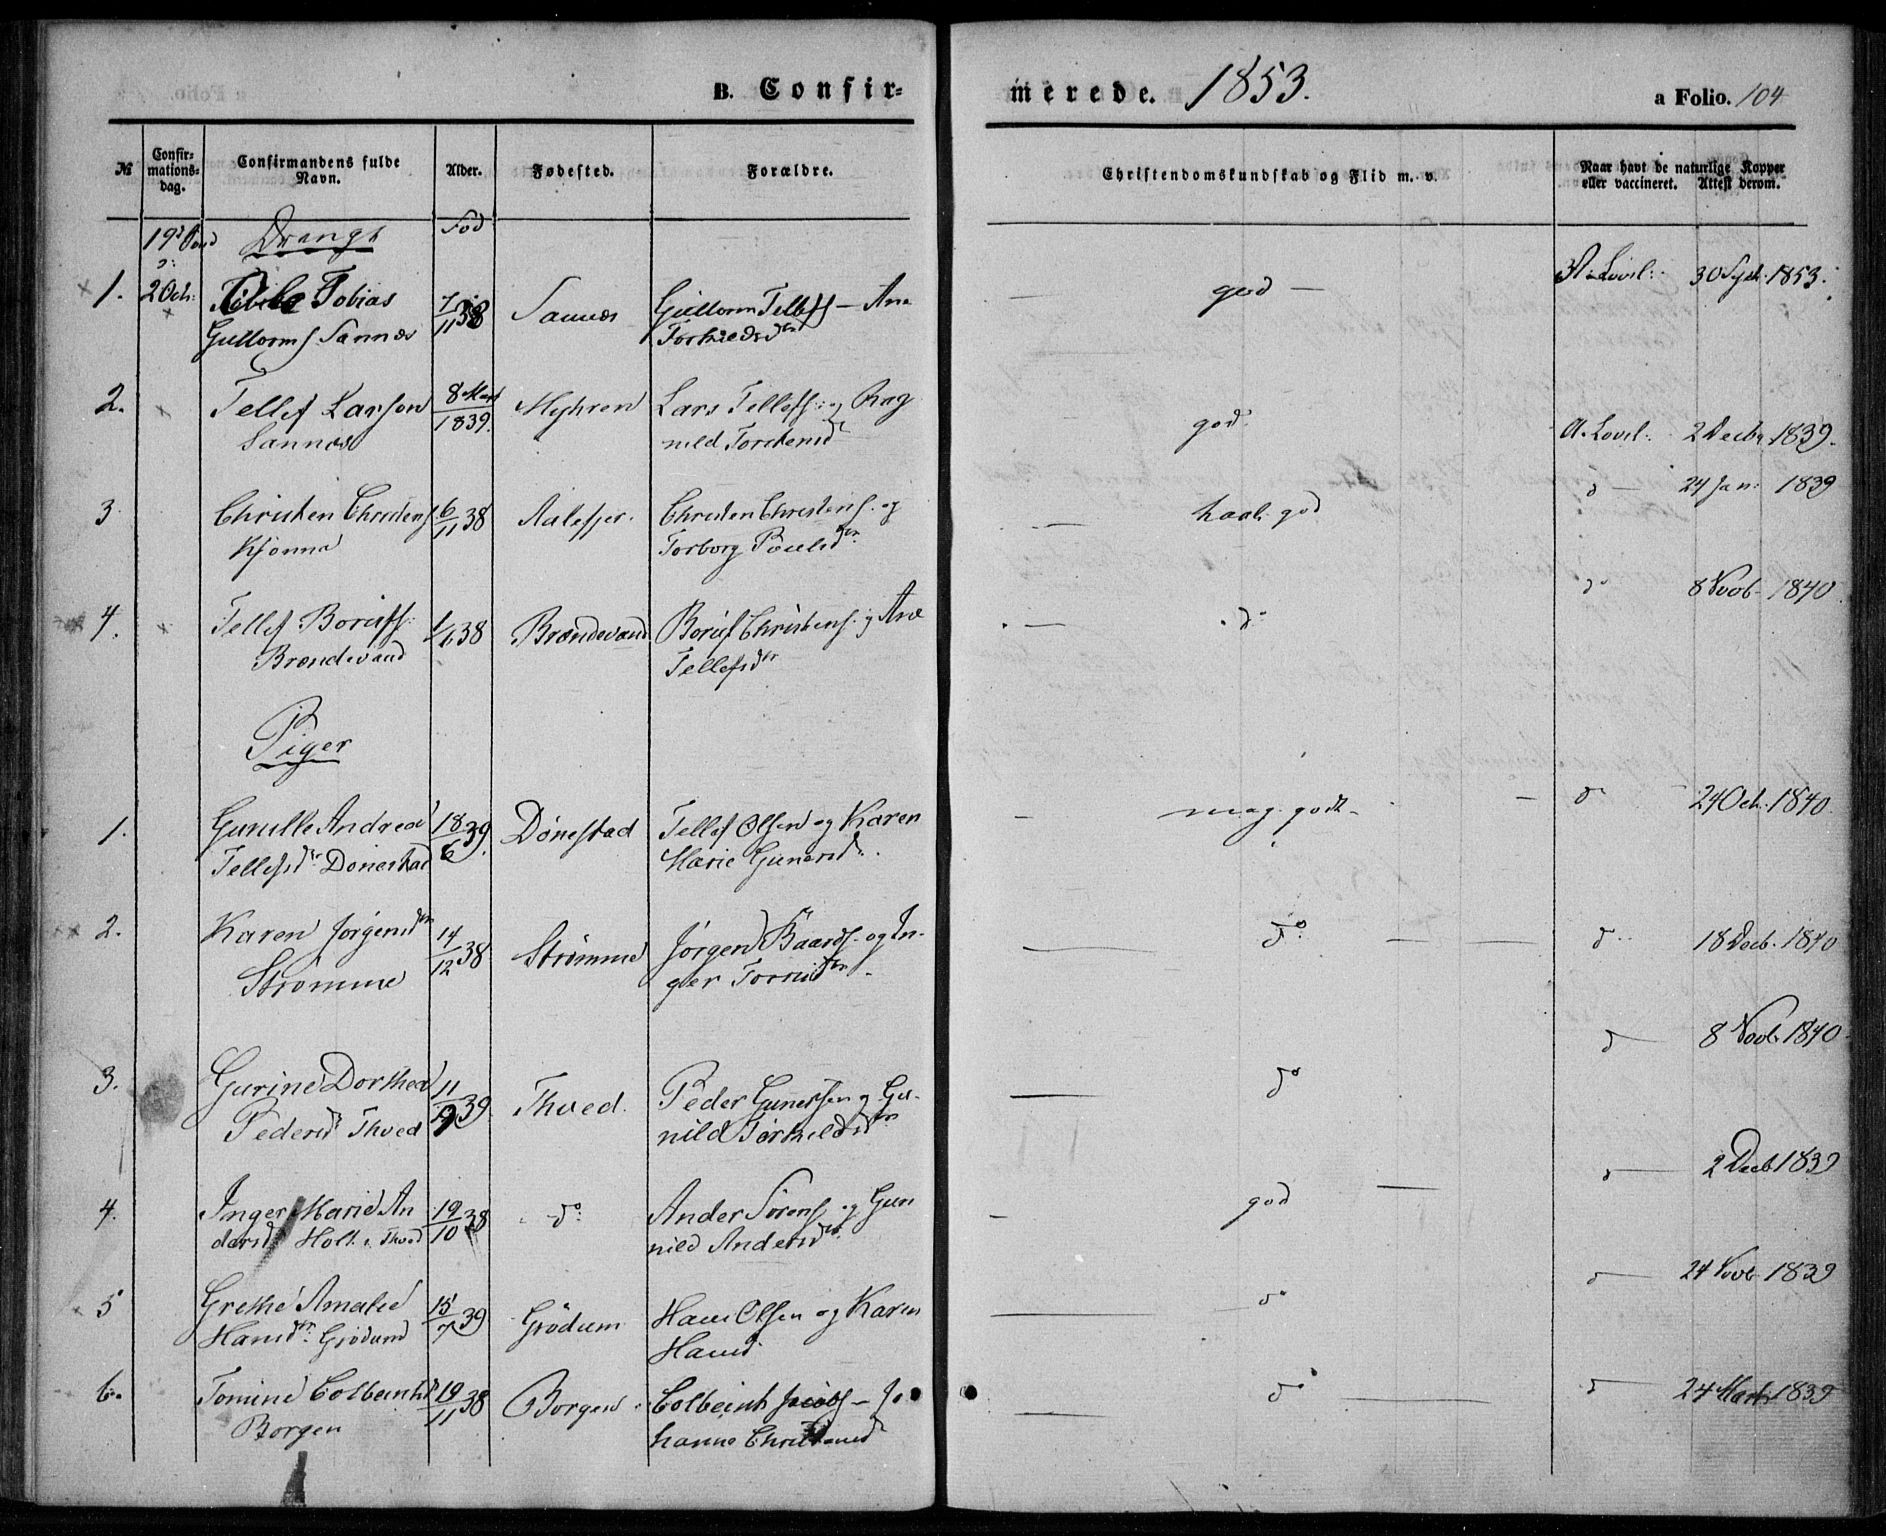 B. Confir=
merede. 1853.
a Folio. 104
№
Confir=
mations=
dag.
Confirmandens fulde
Navn.
Alder.
Fødested.
Forældre.
Christendomskundskab og Flid m. v.
Naar havt de naturlige Kopper
eller vaccineret. Attest derom.
Født
Drenge
1. 2 Oct: Tobias
Guttorms Sannæs
7/11 38
Sannæs
Guttorm Tellefs – Ane
Torkildsdtr
god
A. Lovsl: 30 Sept. 1853.
2. Tellef Larson
Sannæs
8 Mart
1839.
Myhren
Lars Tellefs: og Rag
nild Torstensd
god
A. Lovsl: 2 Decbr 1839.
3. Christen Christens
Kjønna
6/11 38
Aalefjer.
Christen Christens. og
Torborg Poulsdtr
god
do 24 Jan: 1839
4. Tellef Borufs:
Brændevand
38
Brændevand
Boruf Christens. og Ane
Tellefsdtr
do
do 8 Novb. 1840.
Piger
1. Gunille Andrea
Tellefsdtr Dønestad
18/6 39.
Dønestad
Tellef Olsen og Karen
Marie Gunersd.
meg. godt
do 24 Oct. 1840.
2. Karen Jørgensdtr
Strømme
14/12 38
Strømme
Jørgen Baards. og In-
ger Torrisdtr.
do
do 18 Decb. 1840
3. Gurine Dorthea
Pedersd Thved
11/9 39.
Thved.
Peder Gunersen og Gu-
nild Torkildsdtr
do
do 8 Novb. 1840
4. Inger Marie An
dersd Holt i Thved
19/10 38
do
Ander Sørens og Gun
nild Andersdtr
god
do 2 Decb 1839
5 Grethe Amalie
Hansdtr. Grødum
15/7 39
Grødum
Hans Olsen og Karen
Hansd.
do
do 24 Novb 1839
6. Tomine Colbeinsd
Borgen
19/11 38
Borgen
Colbeint Jacobs – Jo
hanne Christensd
do
do 24 Marts 1839